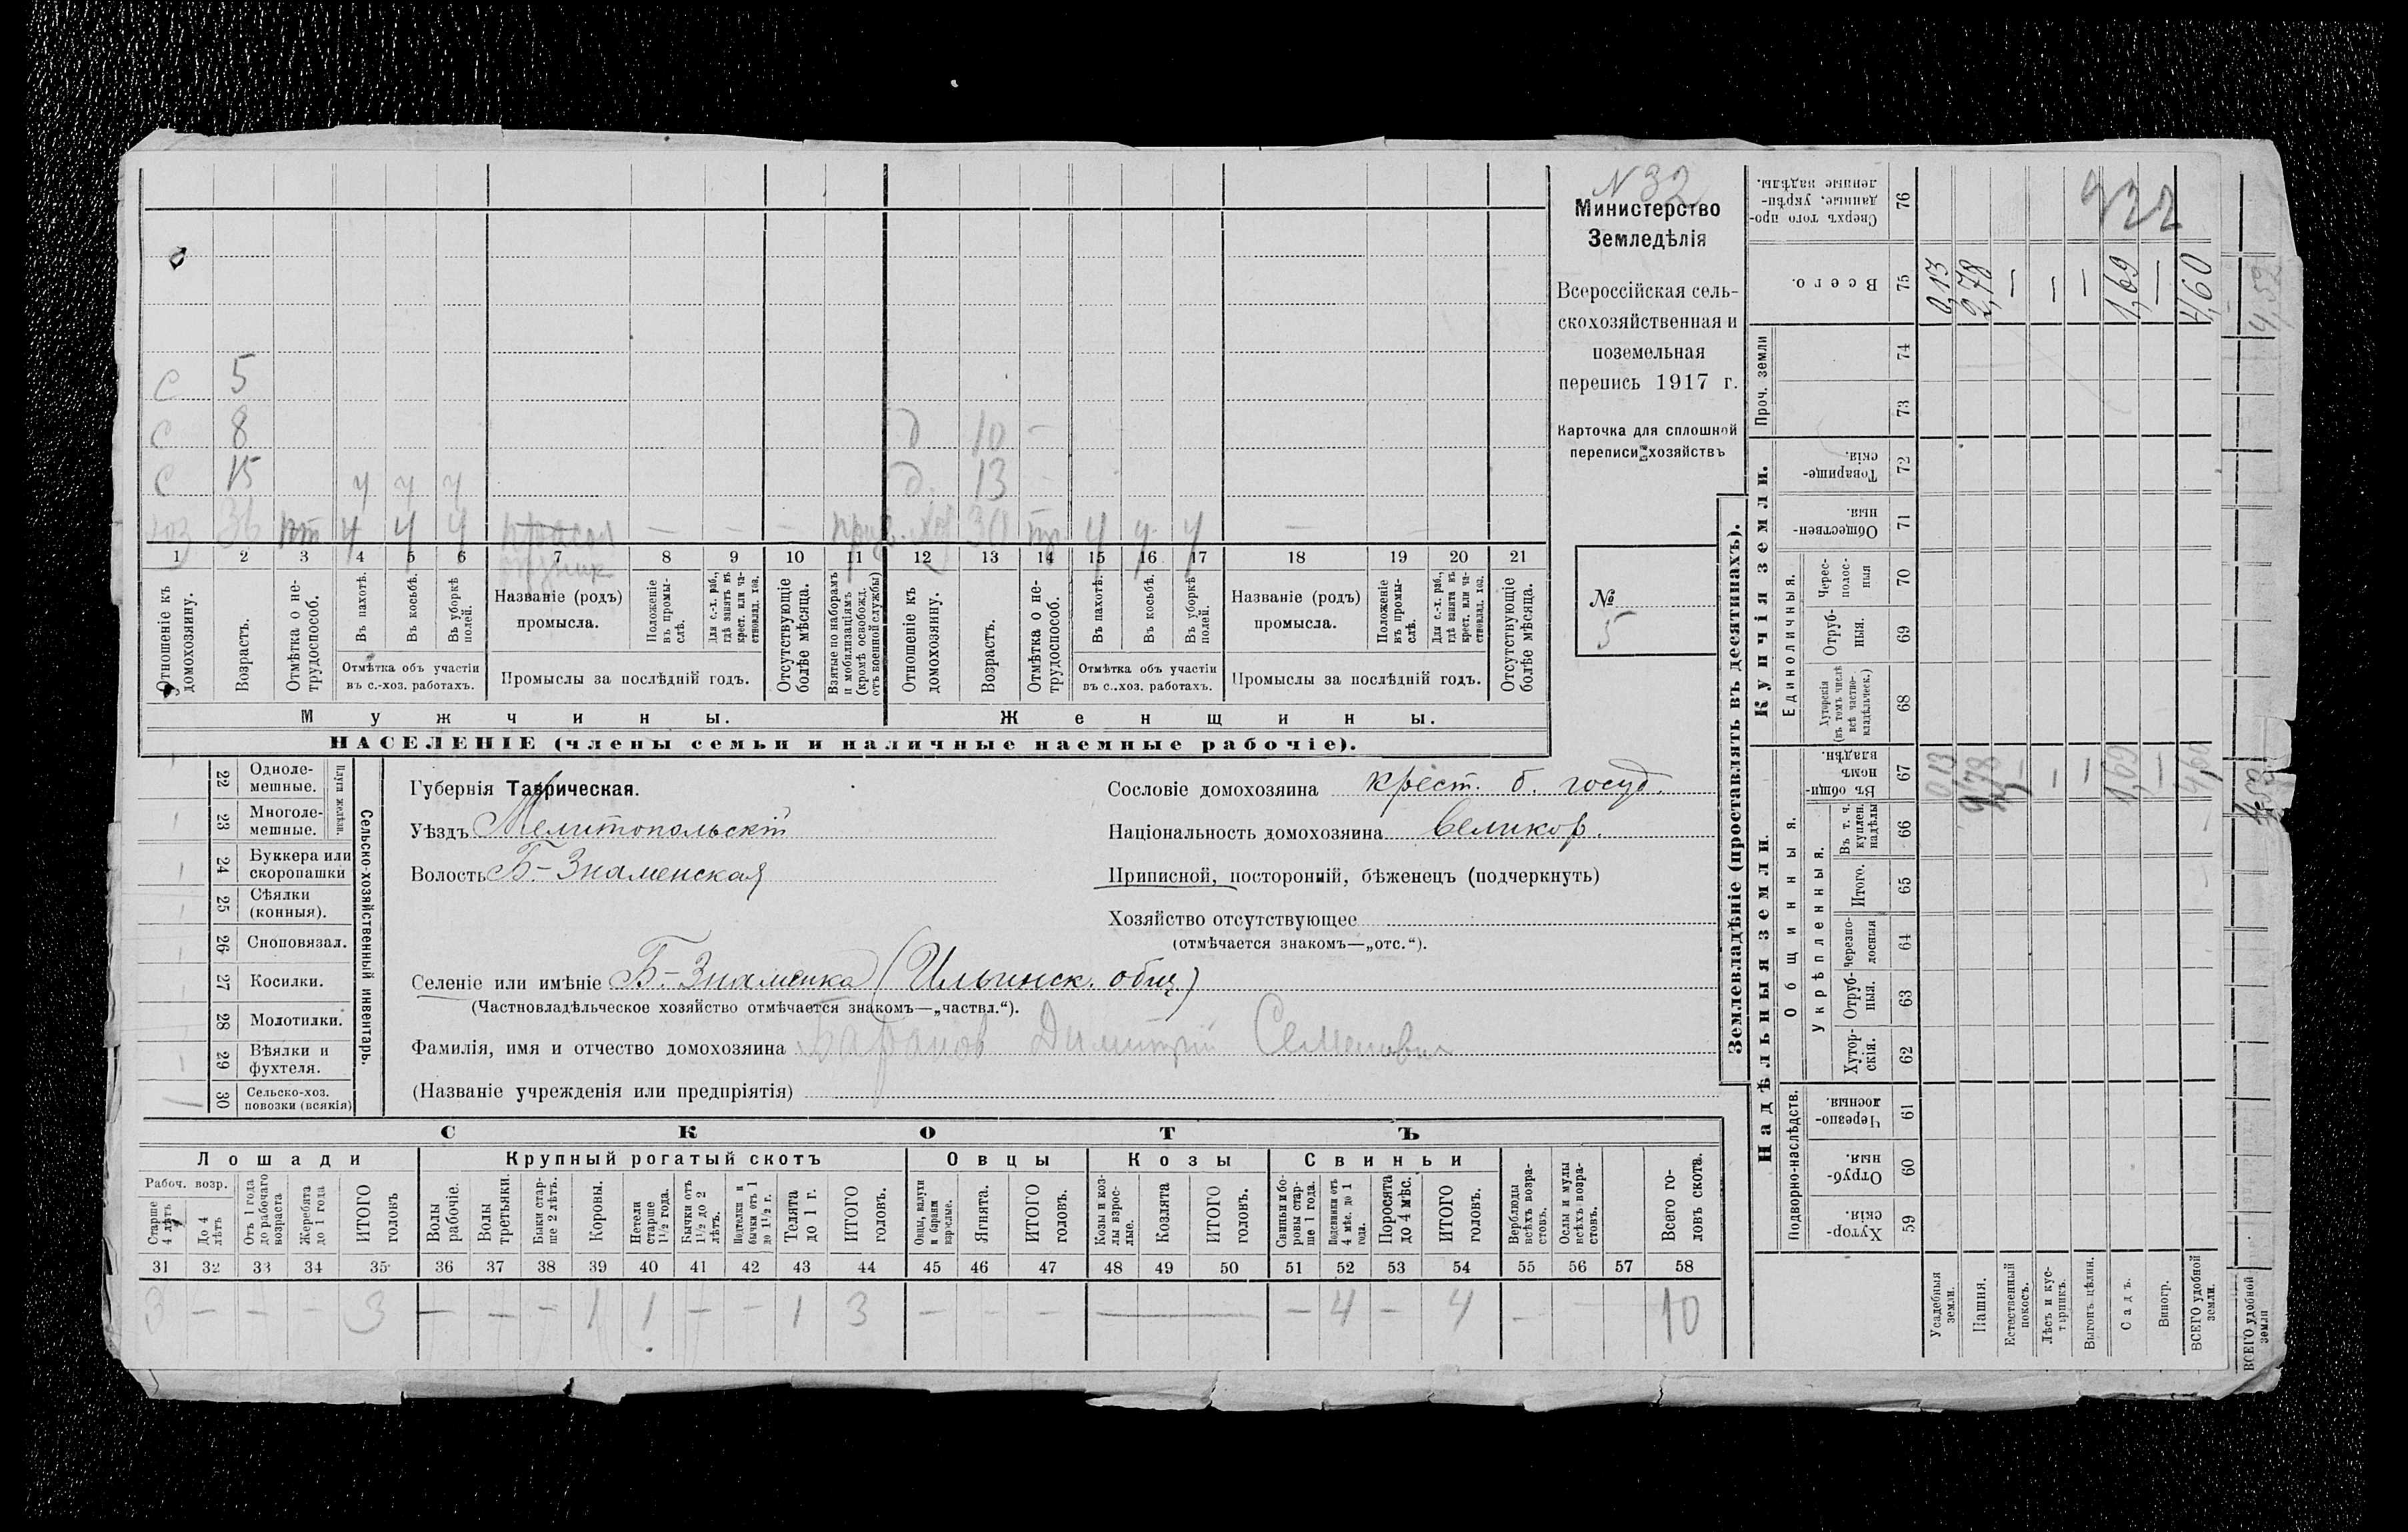 N 32
Министерство
Земледѣлія
Всероссійская сель-
скохозяйственная и
поземельная
перепись 1917 г.
Карточка для сплошной
переписи хозяйствъ
№
5
с 5
с 8 д 10 –
с 15 ч ч ч д. 13 –
хоз 36 ч ч ч – – – 30 ч ч ч – –
1 2 3 4 5 6 7 8 9 10 11 12 13 14 15 16 17 18 19 20 21
Отношеніе къ домохозяину.
Возрастъ.
Отмѣтка о не-трудоспособ.
Въ пахотѣ.
Въ косьбѣ.
Въ уборкѣ полей.
Отмѣтка объ участіи
въ с.-хоз. работахъ.
Названіе (родъ)
промысла.
Положеніе въ промы-слѣ.
Для с.-х. раб., гдѣ занятъ въ крест. или ча-стновлад. хоз.
Промыслы за послѣдній годъ.
Отсутствующіе болѣе мѣсяца.
Взятые по наборамъ и мобилизаціямъ (кромѣ освобожд. отъ военной службы)
Отношеніе къ домохозяину.
Возрастъ.
Отмѣтка о не-трудоспособ.
Въ пахотѣ.
Въ косьбѣ.
Въ уборкѣ полей.
Отмѣтка объ участіи
въ с..хоз. работахъ.
Названіе (родъ)
промысла.
Положеніе въ промы-слѣ.
Для с.-х. раб., гдѣ занята въ крест. или ча-стновлад. хоз.
Промыслы за послѣдній годъ.
Отсутствующіе болѣе мѣсяца.
Мужчины.
Женщины.
НАСЕЛЕНІЕ (члены семьи и наличные наемные рабочіе).
Сельско-хозяйственный инвентарь.
Плуги желѣзн.
22 Одноле-мешные.
23 Многоле-мешные.
24 Буккера или скоропашки
25 Сѣялки (конныя).
26 Сноповязал.
27 Косилки.
28 Молотилки.
29 Вѣялки и фухтеля.
30 Сельско-хоз. повозки (всякія)
Губернія Таврическая.
Уѣздъ Мелитопольскій
Волость Б-Знаменская
Сословіе домохозяина крест. б. госуд.
Національность домохозяина великор.
Приписной, посторонній, бѣженецъ (подчеркнуть)
Хозяйство отсутствующее
(отмѣчается знакомъ—„отс.“).
Селеніе или имѣніе Б-Знаменка (Ильинск. общ)
(Частновладѣльческое хозяйство отмѣчается знакомъ—„частвл.“).
Фамилія, имя и отчество домохозяина Димитрій Семенович
(Названіе учрежденія или предпріятія)
СКОТЪ
Лошади
Крупный рогатый скотъ
Овцы
Козы
Свиньи
Рабоч. возр.
Старше 4 лѣтъ
До 4 лѣтъ
Отъ 1 года до рабочаго возраста
Жеребята до 1 года
ИТОГО головъ
Волы рабочіе.
Волы третьяки.
Быки стар-ше 2 лѣтъ.
Коровы.
Нетели старше 1½ года.
Бычки отъ 1½ до 2 лѣтъ.
Подтелки и бычки отъ 1 до 1½ г.
Телята до 1 г.
ИТОГО головъ.
Овцы, валухи и бараны взрослые.
Ягнята.
ИТОГО головъ.
Козы и коз-лы взрос-лые.
Козлята
ИТОГО головъ.
Свиньи и бо-ровы стар-ше 1 года.
Подсвинки отъ 4 мѣс. до 1 года.
Поросята до 4 мѣс.
ИТОГО головъ.
Верблюды всѣхъ возра-стовъ.
Ослы и мулы всѣхъ возра-стовъ.
Всего го-ловъ скота.
31 32 33 34 35 36 37 38 39 40 41 42 43 44 45 46 47 48 49 50 51 52 53 54 55 56 57 58
3 – – – 3 – – – 1 1 – – 1 3 – – – – – 4 – 4 – 10
Землевладѣніе (проставлять въ десятинахъ).
Надѣльныя земли.
Купчія земли.
Подворно-наслѣдств.
Общинныя.
Укрѣпленныя.
Единоличныя.
Проч. земли
Хутор-скія. 59
Отруб-ныя. 60
Черезпо-лосныя 61
Хутор-скія. 62
Отруб-ныя. 63
Черезпо-лосныя 64
Итого. 65
Въ т. ч. куплен. надѣлы 66
Въ общи-номъ владѣн. 67
Хуторскія (въ томъ числѣ всѣ частно-владѣльческ.) 68
Отруб-ныя. 69
Черес-полос-ныя 70
Обществен-ныя. 71
Товарище-скія. 72
73
74
Всего. 75
Сверхъ того про-данные, укрѣп-ленные надѣлы. 76
Усадебныя земли. 0,13 0,13
Пашня. 2,78 2,78
Естественный покосъ. – –
Лѣсъ и кус-тарникъ. – –
Выгонъ цѣлин. – –
Садъ. 1,69 1,69
Виногр. – –
ВСЕГО удобной земли. 4,60 4,60
ВСЕГО удобной земли 4,52